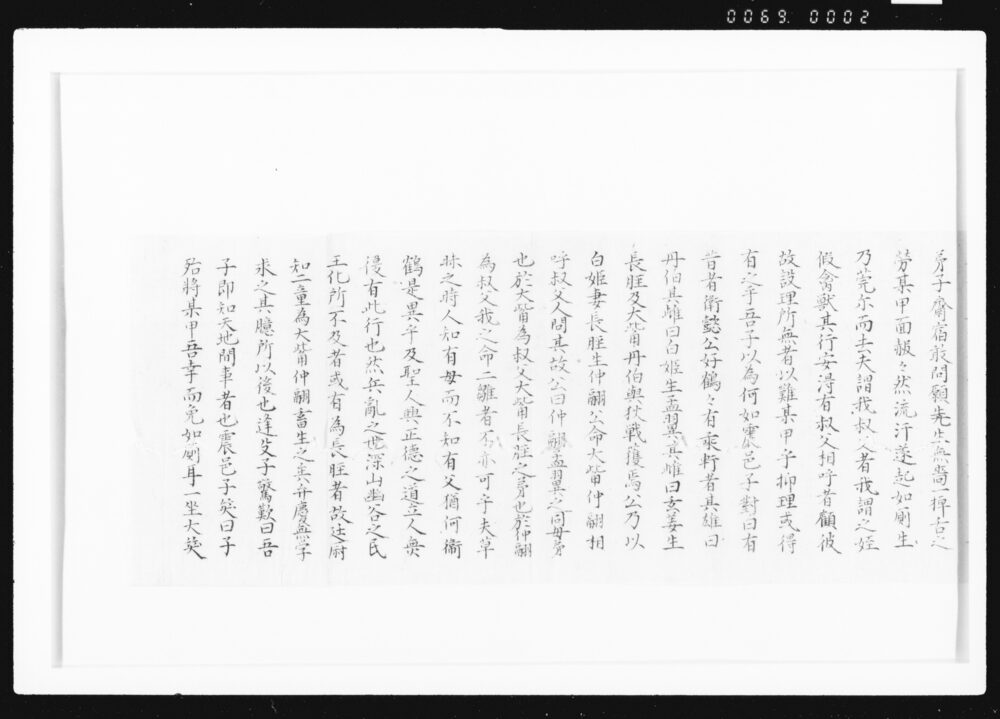 0069. 0002
弟子齋宿敢問願先生無嗇一稗古之
労某甲面赧々然流汗遂起如廁生
乃莞尓而土夫謂我叔父者我謂之姪
假禽獣其行安淂有叔父相呼者顧彼
故設理所無者以難某甲乎抑理或得
有之乎吾子以為何如震邑子對曰有
昔者衛懿公好鶴々有乘軒者其雄曰
丹伯其雌曰白姬生孟翼其雌曰玄姜生
長脛及大觜丹伯與狄戦獲焉公乃以
白姬妻長脛生仲翮公命大觜仲翮相
呼叔父人問其故公曰仲翮孟翼之同母弟
也於大觜為叔父大觜長脛之弟也於仲翮
為叔父我之命二雛者不亦可乎夫草
昧之時人知有母而不知有父猶何衞
鶴是異乎及聖人興正德之道立人無
復有此行也然兵亂之世深山幽谷之民
王化所不及者或有為長脛者故辻尉
知二童為大觜仲翮畜生之矣弁慶無学
求之其臆所以後也逢父子驚歎曰吾
子即知天地間事者也震邑子笑曰子
殆將某甲吾幸而免如廁耳一坐大笑